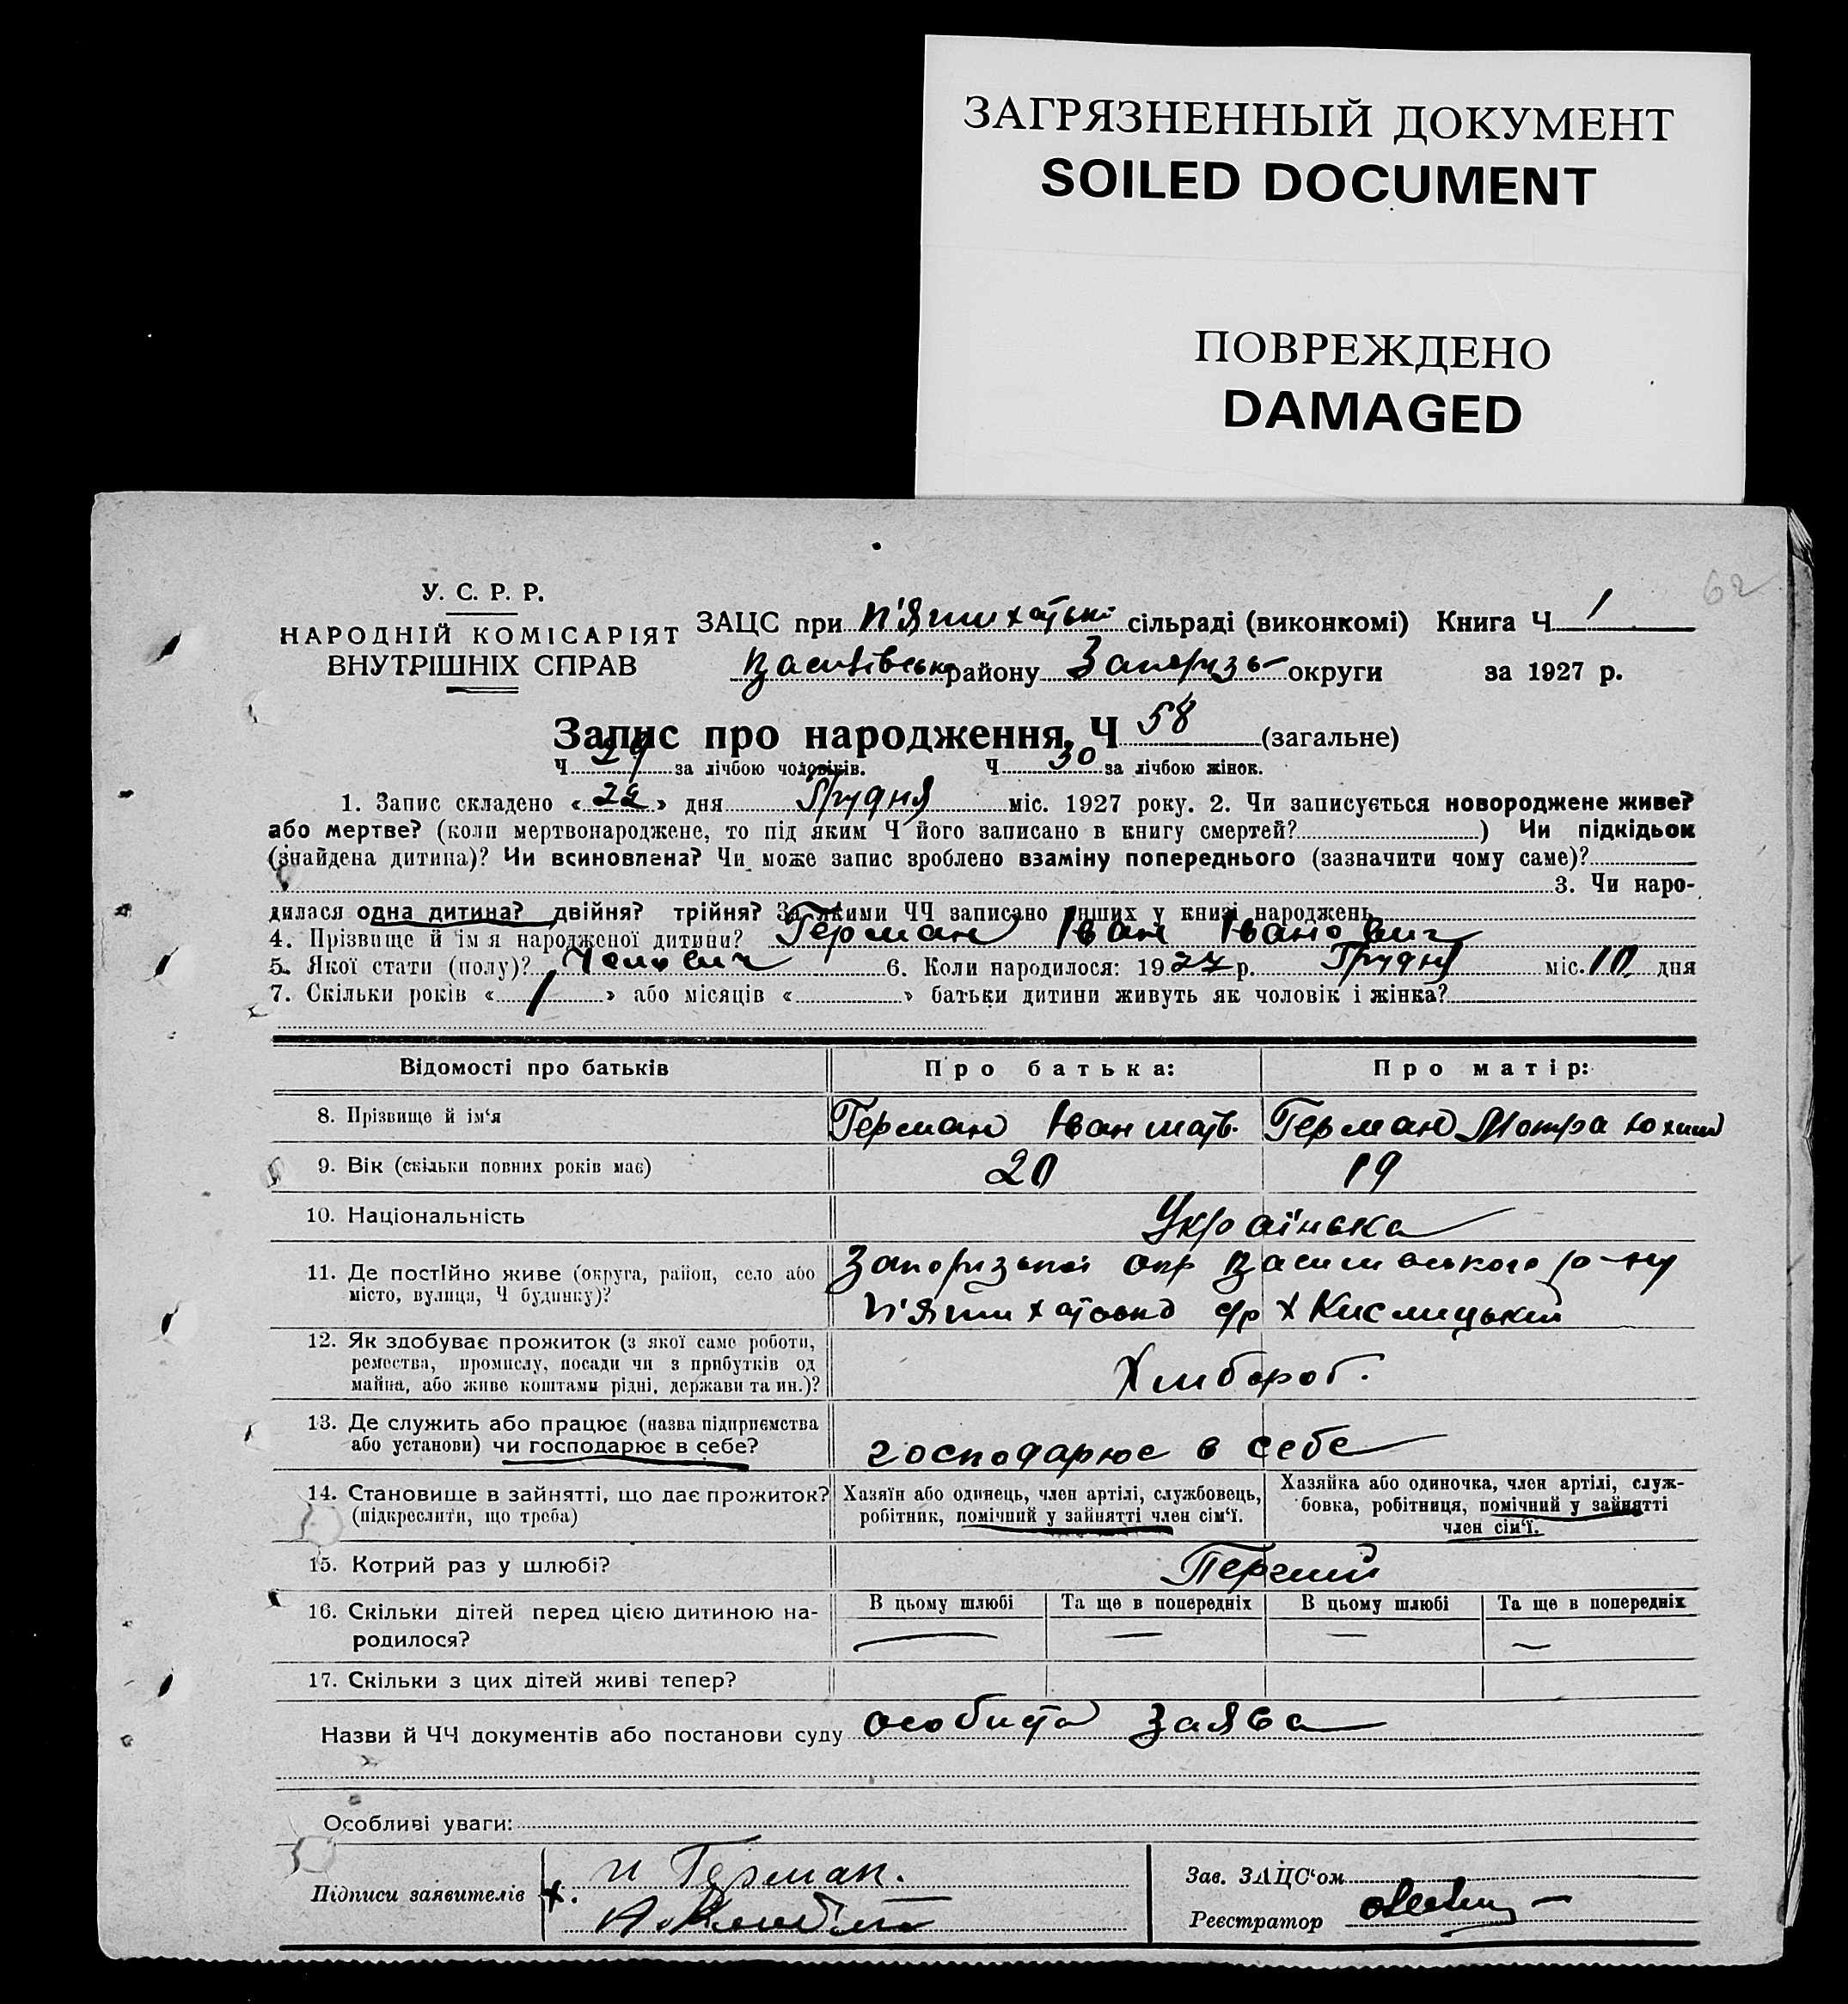 ЗАГРЯЗНЕННЫЙ ДОКУМЕНТ
SOILED DOCUMENT
ПОВРЕЖДЕНО
DAMAGED
62
У. С. Р. Р.
НАРОДНІЙ КОМІСАРІЯТ
ВНУТРІШНІХ СПРАВ
ЗАЦС при П'ятихатські сільраді (виконкомі) Книга Ч 1
Василівськ району Запоризь округи за 1927 р.
Запис про народження, Ч 58 (загальне)
Ч 29 за лічбою чоловіків. Ч 30 за лічбою жінок.
1. Запис складено « 22 » дня Грудня міс. 1927 року. 2. Чи записується новороджене живе?
або мертве? (коли мертвонароджене, то під яким Ч його записано в книгу смертей? ) Чи підкідьок
(знайдена дитина)? Чи всиновлена? Чи може запис зроблено взаміну попереднього (зазначити чому саме)?
3. Чи наро-
дилася одна дитина? двійня? трійня? За якими ЧЧ записано инших у книзі народжень
4. Прізвище й ім я народженої дитини? Герман Іван Іванович
5. Якої стати (полу)? Чолович 6. Коли народилося: 1927 р. Грудня міс. 10 дня
7. Скільки років « » або місяців « » батьки дитини живуть як чоловік і жінка?
Відомості про батьків Про батька: Про матір:
8. Прізвище й ім‘я Герман Іван Матв. Герман Мотра Юхим
9. Вік (скільки повних років має) 20 19
10. Національність Українська
11. Де постійно живе (округа, район, село або Запоризької окр Василівського р-ну
місто, вулиця, Ч будинку)? П'ятихатськ с/р х Кислицький
12. Як здобуває прожиток (з якої саме роботи,
ремества, промислу, посади чи з прибутків од Хлибороб.
майна, або живе коштами рідні, держави та ин.)?
13. Де служить або працює (назва підприємства
або установи) чи господарює в себе? господарює в себе
14. Становище в зайнятті, що дає прожиток? Хазяїн або одинець, член артілі, службовець, Хазяйка або одиночка, член артілі, служ-
(підкреслити, що треба) робітник, помічний у зайнятті член сім‘ї. бовка, робітниця, помічний у зайнятті
член сім‘ї.
15. Котрий раз у шлюбі? Перший
16. Скільки дітей перед цією дитиною на- В цьому шлюбі Та ще в попередніх В цьому шлюбі Та ще в попередніх
родилося? — — — —
17. Скільки з цих дітей живі тепер?
Назви й ЧЧ документів або постанови суду особиста заява
Особливі уваги:
Підписи заявителів И Герман.
Зав. ЗАЦС‘ом
Реєстратор